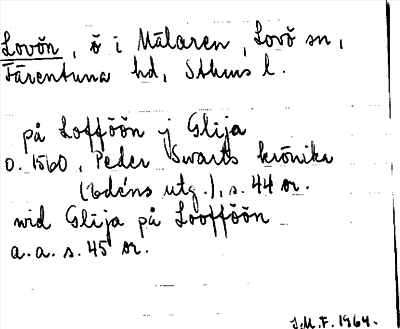 Lovön, ö i Mälaren, Lovö sn,
Färentuna hd, Sthms l.
på Lofföön j Glija
o. 1560, Peder Swarts krönika
(Edéns utg.), s. 44 or.
wid Glija på Loofföön
a.a. s. 45 or.
J.M.F. 1964.